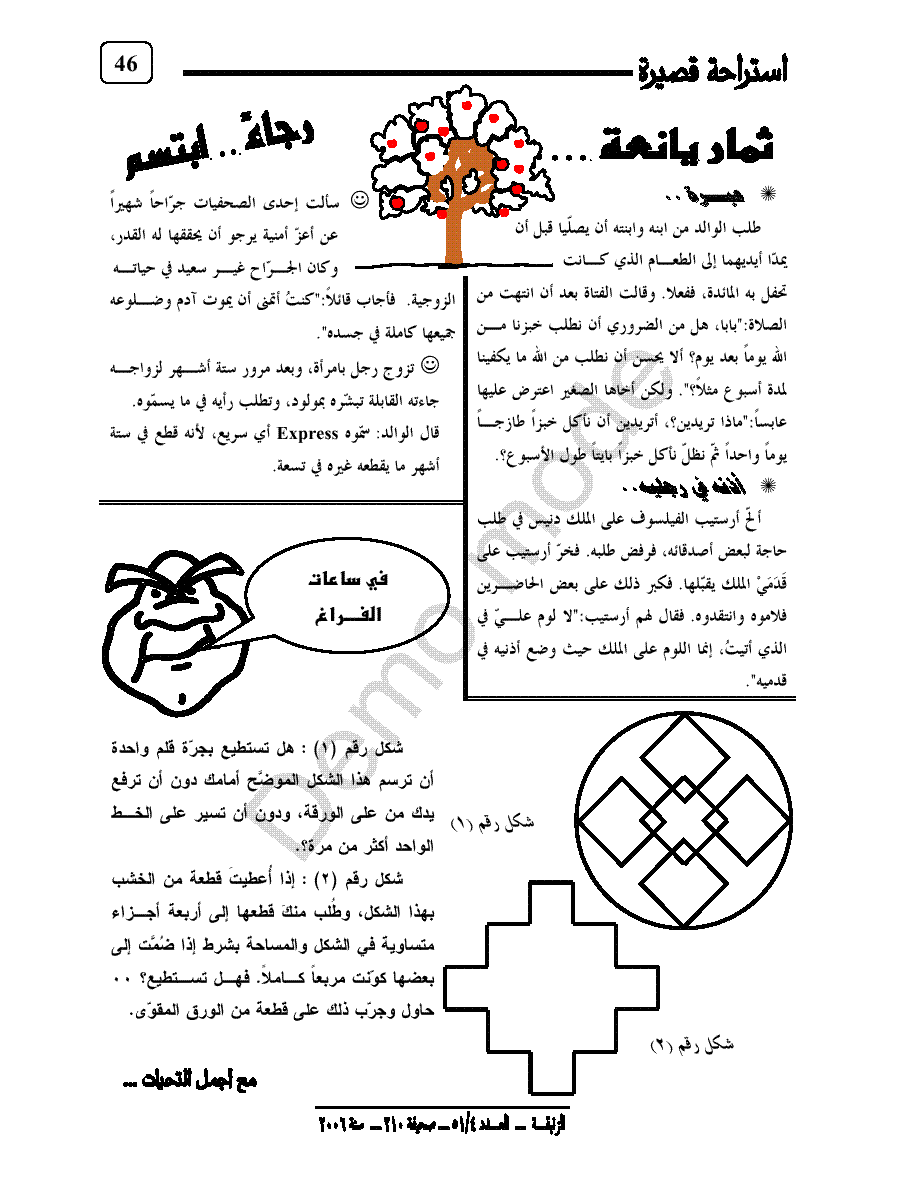 46
استراحة قصيرة
ثمار يانعة ....
عبـــرة ..
طلب الوالد من ابنه وابنته أن يصلّيا قبل أن
يمدّا أيديهما إلى الطعـــام الذي كـــانت
تحفل به المائدة، ففعلا. وقالت الفتاة بعد أن انتهت من
الصلاة:"بابا، هل من الضروري أن نطلب خبزنا مـــن
الله يوماً بعد يوم؟ ألا يحسن أن نطلب من الله ما يكفينا
لمدة أسبوع مثلاً؟". ولكن أخاها الصغير اعترض عليها
عابساً:"ماذا تريدين؟، أتريدين أن نأكل خبزاً طازجـــاً
يوماً واحداً ثمّ نظلّ نأكل خبزاً بايتاً طول الأسبوع؟.
أذنه في رجليه..
ألحّ أرستيب الفيلسوف على الملك دنيس في طلب
حاجة لبعض أصدقائه، فرفض طلبه. فخرّ أرستيب على
قَدَمَيْ الملك يقبّلها. فكبر ذلك على بعض الحاضـــرين
فلاموه وانتقدوه. فقال لهم أرستيب:"لا لوم علـــيّ في
الذي أتيتُ، إنما اللوم على الملك حيث وضع أذنيه في
قدميه".
رجاءً... ابتسم
سألت إحدى الصحفيات جرّاحاً شهيراً
عن أعزّ أمنية يرجو أن يحققها له القدر،
وكان الجـــرّاح غيـــر سعيد في حياتـــه
الزوجية. فأجاب قائلاً:"كنتُ أتمنى أن يموت آدم وضـــلوعه
جميعها كاملة في جسده".
تزوج رجل بامرأة، وبعد مرور ستة أشـــهر لزواجـــه
جاءته القابلة تبشّره بمولود، وتطلب رأيه في ما يسمّوه.
قال الوالد: سمّوه Express أي سريع، لأنه قطع في ستة
أشهر ما يقطعه غيره في تسعة.
في ساعات
الفـــراغ
شكل رقم (١) : هل تستطيع بجرّة قلم واحدة
أن ترسم هذا الشكل الموضَّح أمامك دون أن ترفع
يدك من على الورقة، ودون أن تسير على الخـــط
الواحد أكثر من مرة؟.
شكل رقم (١)
شكل رقم (٢) : إذا أُعطيتَ قطعة من الخشب
بهذا الشكل، وطُلب منكَ قطعها إلى أربعة أجـــزاء
متساوية في الشكل والمساحة بشرط إذا ضُمَّت إلى
بعضها كوّنت مربعاً كـــاملاً. فهـــل تســـتطيع؟ ..
حاول وجرّب ذلك على قطعة من الورق المقوّى.
شكل رقم (٢)
مع أجمل التحيات ...
الزنبقـــة ـــ العـــدد ٥١/٤ ـــ صحيفة ٢١٠ ـــ سنة ٢٠٠٦
Demo mode